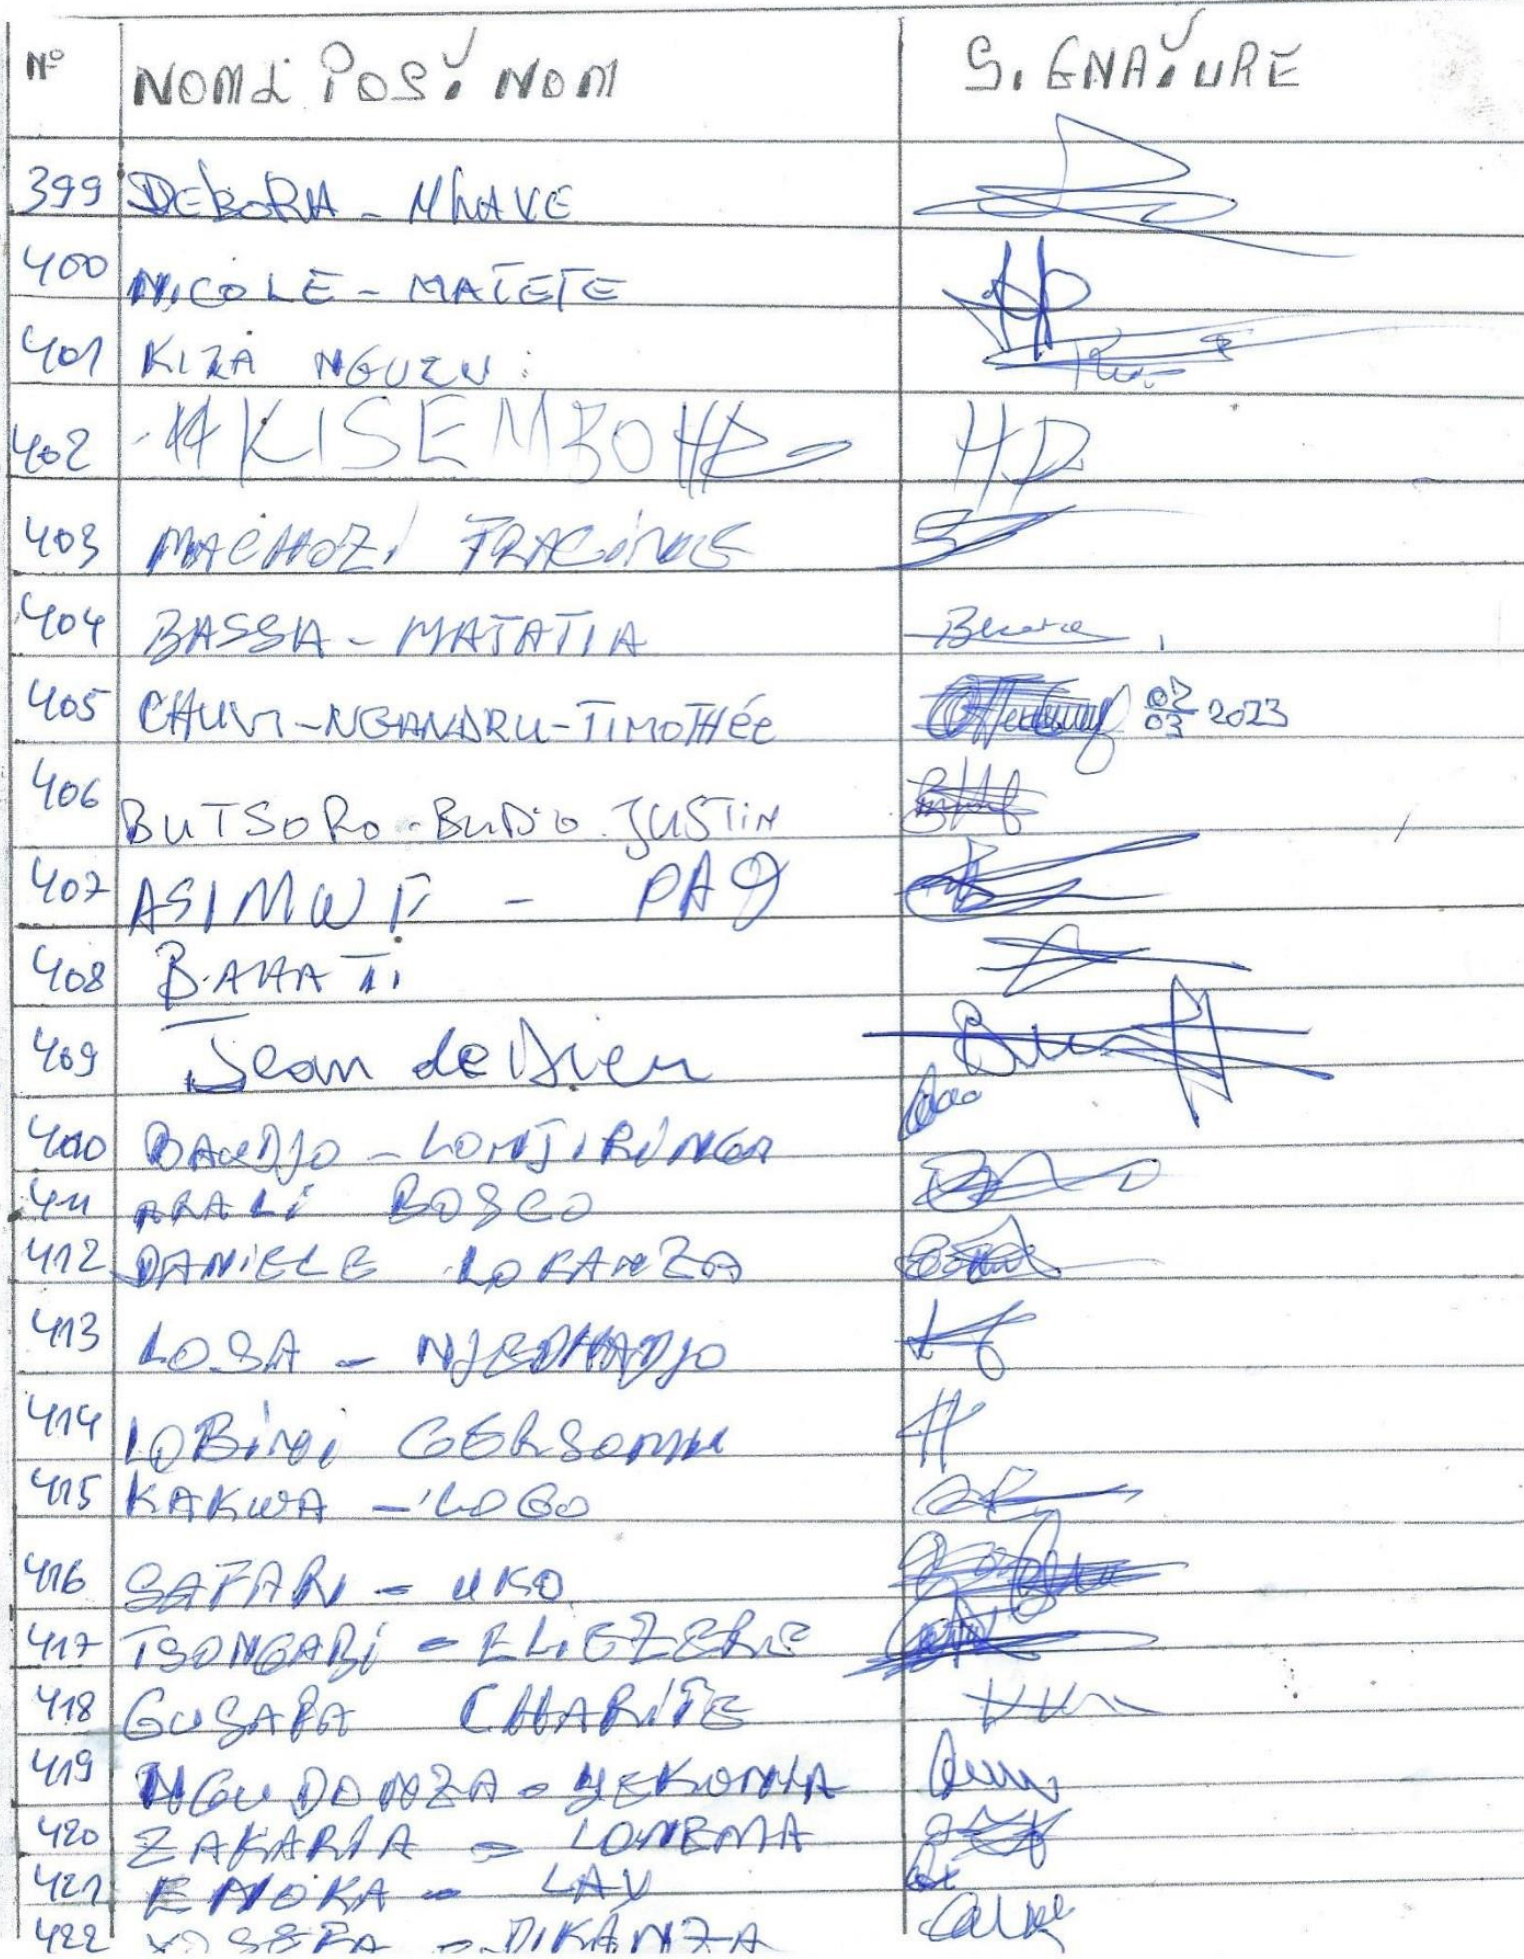 N° NOM & POST. NOM SIGNATURE
399 DEBORA - MLAVE
400 NICOLE - MATETE
401 KIZA NGUZU
402 KISEMBO HD
403 MACHOZI
404 BASSA - MATATIA
405 CHUVI-NGANDRU-TIMOTHÉE 02 03 2023
406 BUTSORO - BUDJO JUSTIN
407 ASIMWE -
408 BAHATI
409 Jean de Dieu
410 BAUDJO -
411 ARALI BOSCO
412 DANIELE LOKANZA
413 LOSA - NJEDHADJO
414 LOBINI GERSOMM
415 KAKWA - LOGO
416 SAFARI - UKO
417 TSONGABI - ELIEZERE
418 GUSAPA CHARITE
419 NGUDONZA - YEKONIA
420 ZAKARIA - LONEMA
421 ENOKA - LAV
422 YOSEFA - DIKANZA